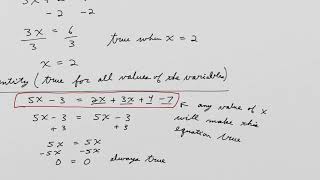 - 2 - 2
3x = 6
3 3 true when x = 2
x = 2
(true for all values of the variables)
5x - 3 = 2x + 3x + 4 - 7
← any value of x
5x - 3 = 5x - 3 will make this
+ 3 + 3 equation true
5x = 5x
-5x -5x
0 = 0 always true